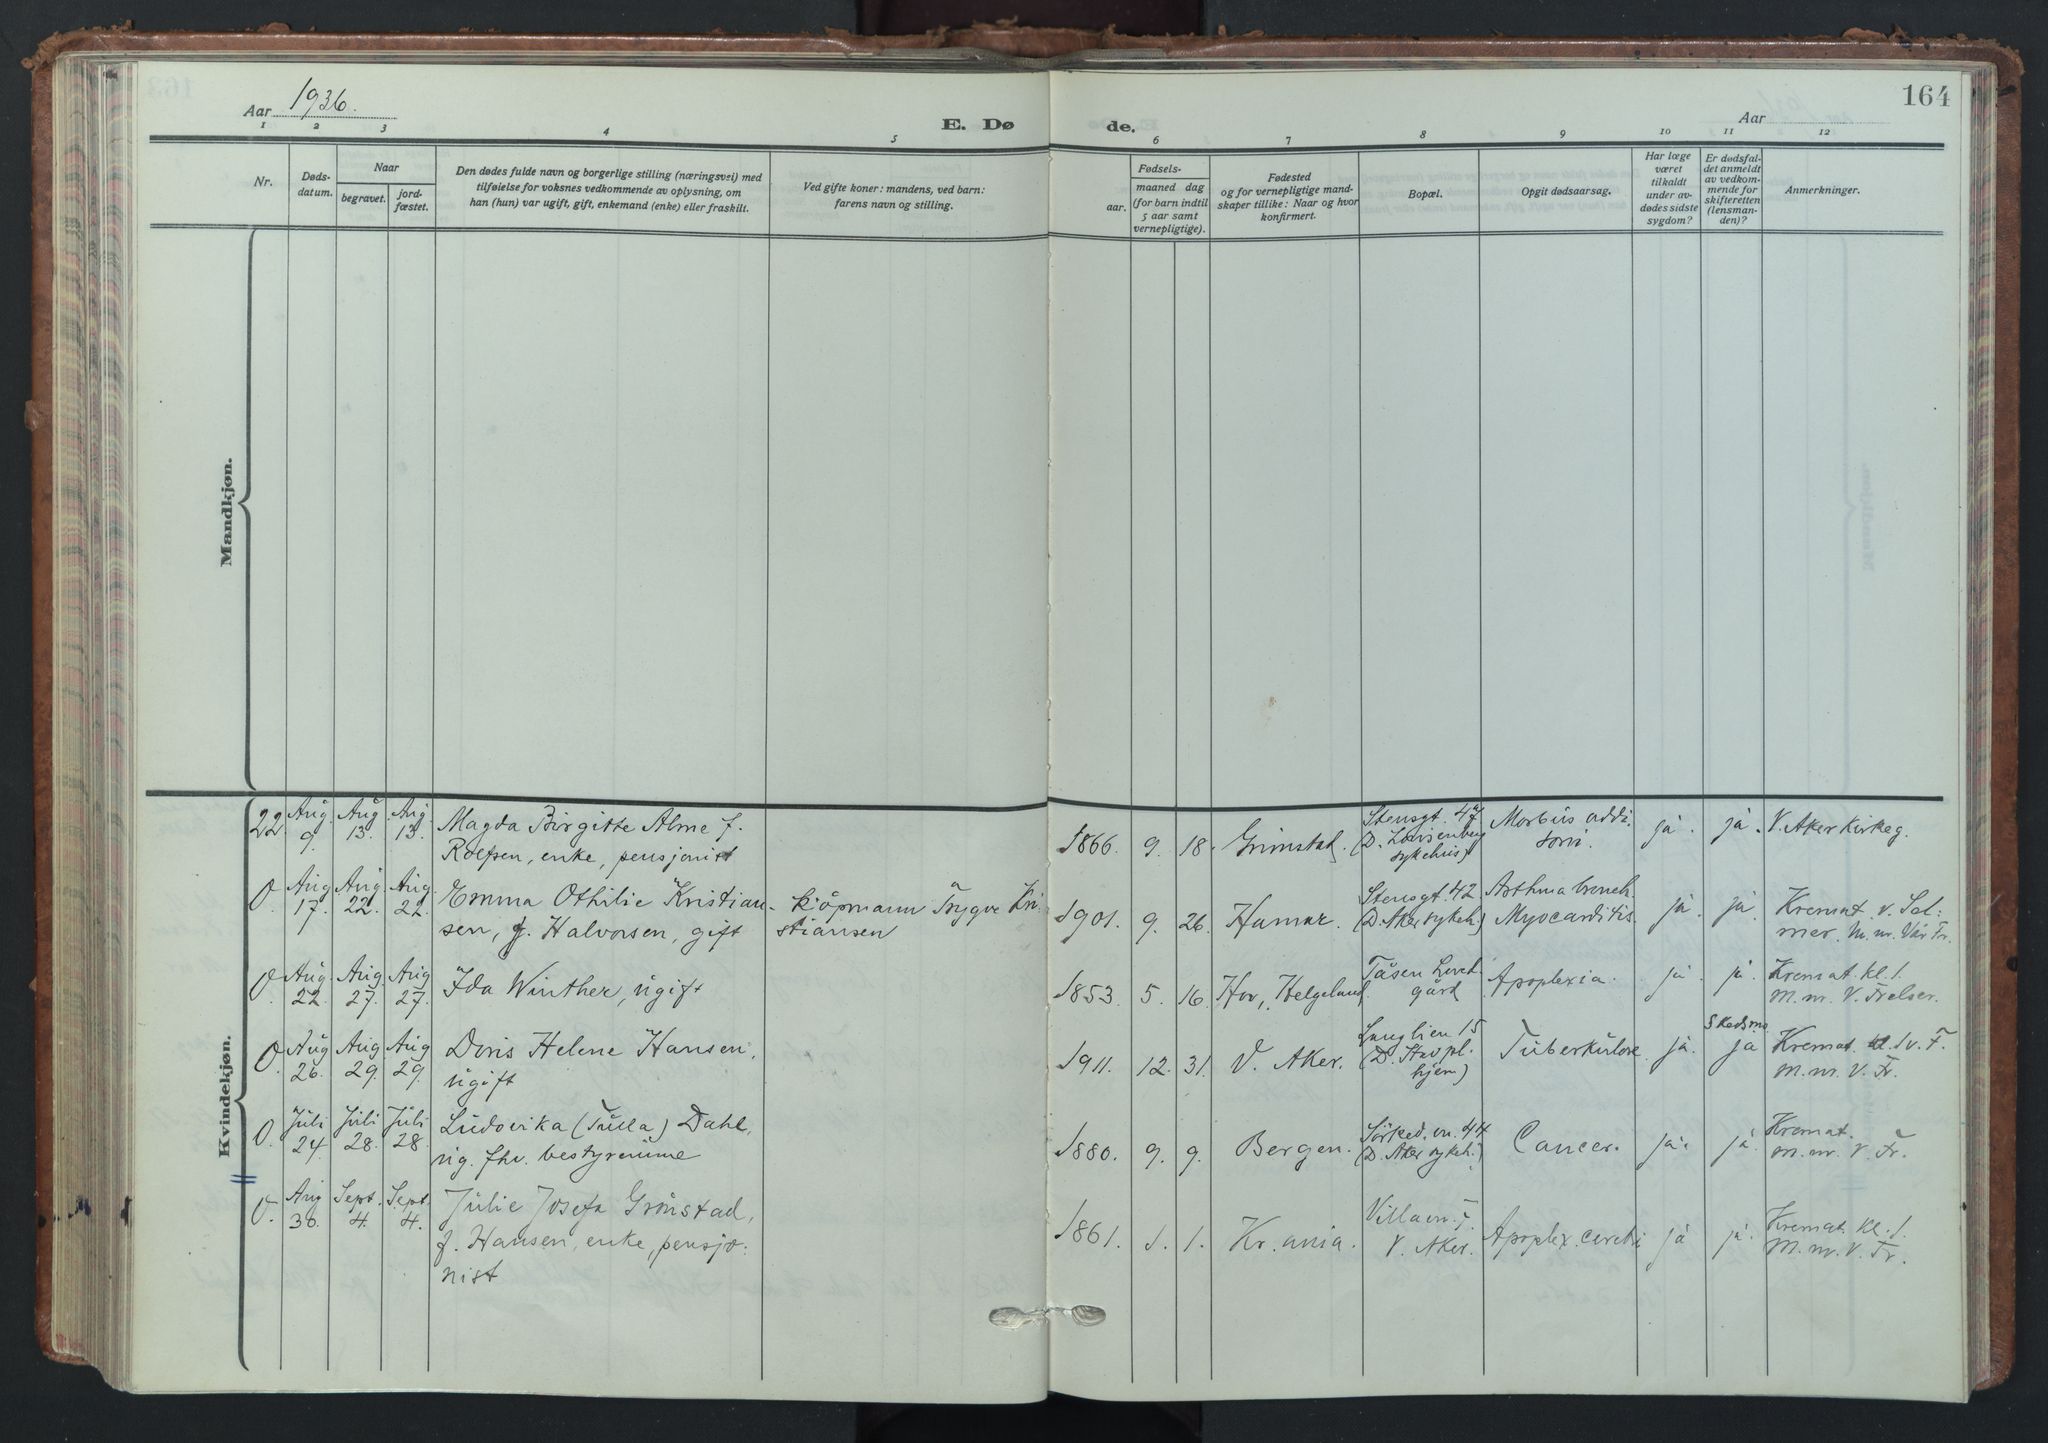 164
Aar 1936.
E. Døde.
Aar
1 2 3 4 5 6 7 8 9 10 11 12
Nr.
Dødsdatum.
Naar
begravet.
jordfæstet.
Den dødes fulde navn og borgerlige stilling (næringsvei) med
tilføielse for voksnes vedkommende av oplysning, om
han (hun) var ugift, gift, enkemand (enke) eller fraskilt.
Ved gifte koner: mandens, ved barn:
farens navn og stilling.
Fødsels-
aar.
maaned dag
(for barn indtil
5 aar samt
vernepligtige).
Fødested
og for vernepligtige mand-
skaper tillike: Naar og hvor
konfirmert.
Bopæl.
Opgit dødsaarsag.
Har læge
været
tilkaldt
under av-
dødes sidste
sygdom?
Er dødsfal-
det anmeldt
av vedkom-
mende for
skifteretten
(lensman-
den)?
Anmerkninger.
Mandkjøn.
Kvindekjøn.
22 Aug. 9. Aug 13. Aug. 13. Magda Birgitte Alme f.
Rolfsen, enke, pensjonist
1866. 9. 18. Grimstad
Stensgt. 47
(D. Lovisenberg
sykehus)
Morbus addi-
soni.
ja. ja. V. Aker kirkeg.
O. Aug 17. Aug 22. Aug. 22. Emma Othilie Kristian-
sen, f. Halvorsen, gift
Kjøpmann Trygve Kri-
stiansen
1901. 9. 26. Hamar.
Stensgt. 42.
(D. Aker sykeh.)
Asthma bronch
Myocarditis.
ja. ja. Kremat. v. Sel-
mer. M. nr. Vår Fr.
O Aug. 22. Aug 27. Aug 27. Ida Winther, ugift
1853. 5. 16. Hov, Helgeland.
Tåsen
gård
Apoplexia.
ja. ja. Kremat. kl. 1.
M. nr. V. Frelser.
O Aug 26. Aug 29. Aug 29. Doris Helene Hansen,
ugift
1911. 12. 31. V. Aker.
Langlien 15
hjem)
Tuberkulose
ja. Skedsmo
ja Kremat.
M. nr. V. Fr.
O. Juli 24. Juli 28. Juli 28 Ludovika (Tulla) Dahl,
ug. fhv. bestyrerinne
1880. 9. 9. Bergen.
Sørked.vn. 44
(D. Aker sykeh.)
Cancer.
ja. ja. Kremat.
M. nr. V. Fr.
O. Aug 30. Sept. 4. Sept. 4. Julie Josefa Grinstad,
f. Hansen, enke, pensjo-
nist
1861. 1. 1. Kr.ania.
Villavn. 7.
V. Aker.
Apoplex. cerebri
ja ja. Kremat. kl. 1.
M. nr. V. Fr.